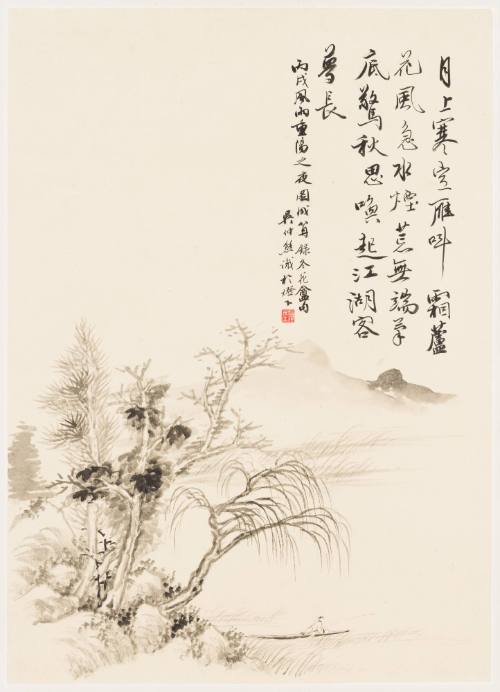 月上寒空雁叫霜蘆
花風急水煙荒無端筆
底驚秋思喚起江湖客
夢長
丙戌風雨重陽之夜圖成錄冬花盦句
吳仲熊識於燈下